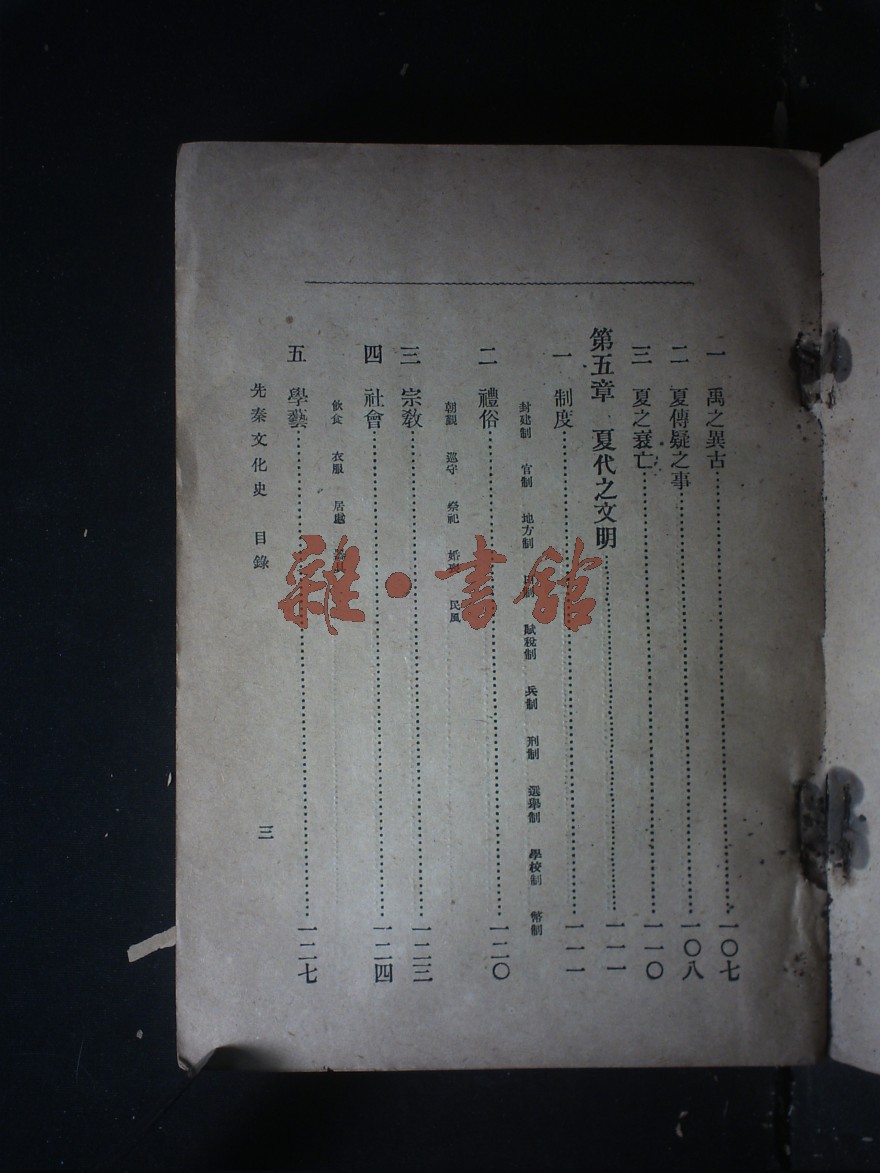 一 禹之異古……一〇七
二 夏傳疑之事……一〇八
三 夏之衰亡……一一〇
第五章 夏代之文明……一一一
一 制度……一一一
封建制 官制 地方制 田制 賦稅制 兵制 刑制 選舉制 學校制 幣制
二 禮俗……一二〇
朝覲 巡守 祭祀 婚喪 民風
三 宗教……一二三
四 社會……一二四
飲食 衣服 居處
五 學藝……一二七
先秦文化史 目錄 三
雜·書館